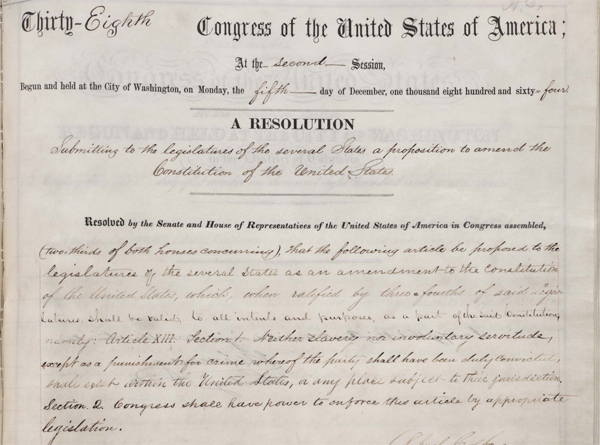 Thirty-Eighth Congress of the United States of America;
At the second Session,
Begun and held at the City of Washington, on Monday, the fifth day of December, one thousand eight hundred and sixty-four
A RESOLUTION
Submitting to the legislatures of the several States a proposition to amend the
Constitution of the United States.
Resolved by the Senate and House of Representatives of the United States of America in Congress assembled,
(two-thirds of both houses concurring), That the following article be proposed to the
legislatures of the several States as an amendment to the Constitution
of the United States, which, when ratified by three-fourths of said legis-
latures, shall be valid, to all intents and purposes, as a part of the said Constitution,
namely: Article XIII. Section 1. Neither slavery nor involuntary servitude,
except as a punishment for crime whereof the party shall have been duly convicted,
shall exist within the United States, or any place subject to their jurisdiction.
Section 2. Congress shall have power to enforce this article by appropriate
legislation.